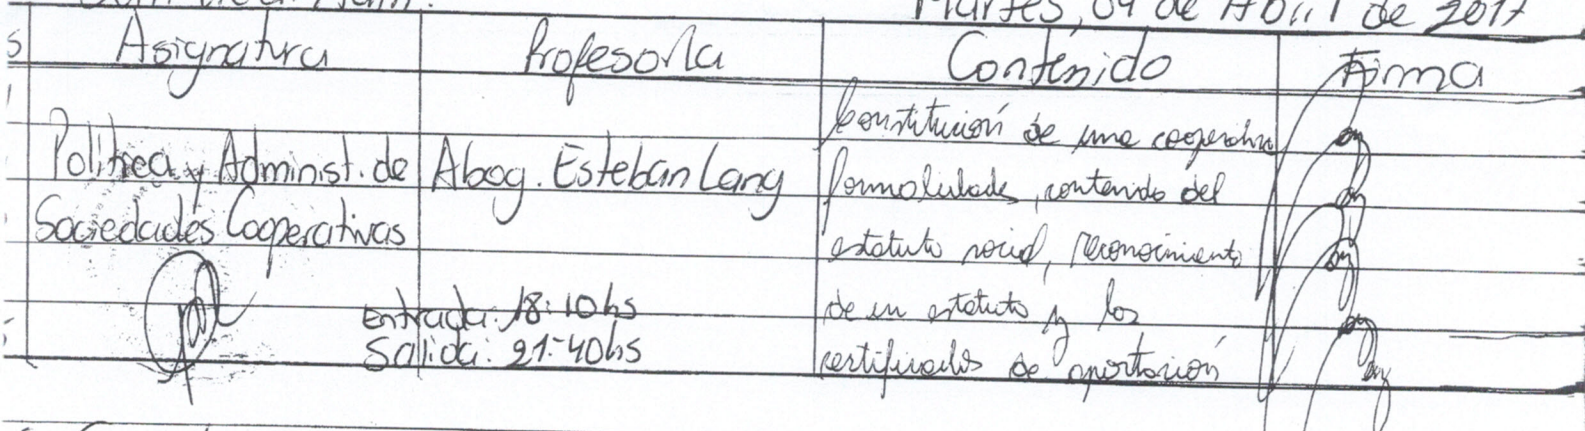 Martes, 04 de Abril de 2017
Asignatura Profesor/a Contenido Firma
Política y Administ. de Sociedades Cooperativas
Abog. Esteban Lang
Constitución de una cooperativa
formalidades, contenido del
estatuto social, reconocimiento
de un estatuto y los
certificados de aportación
Entrada: 18:10hs
Salida: 21:40hs